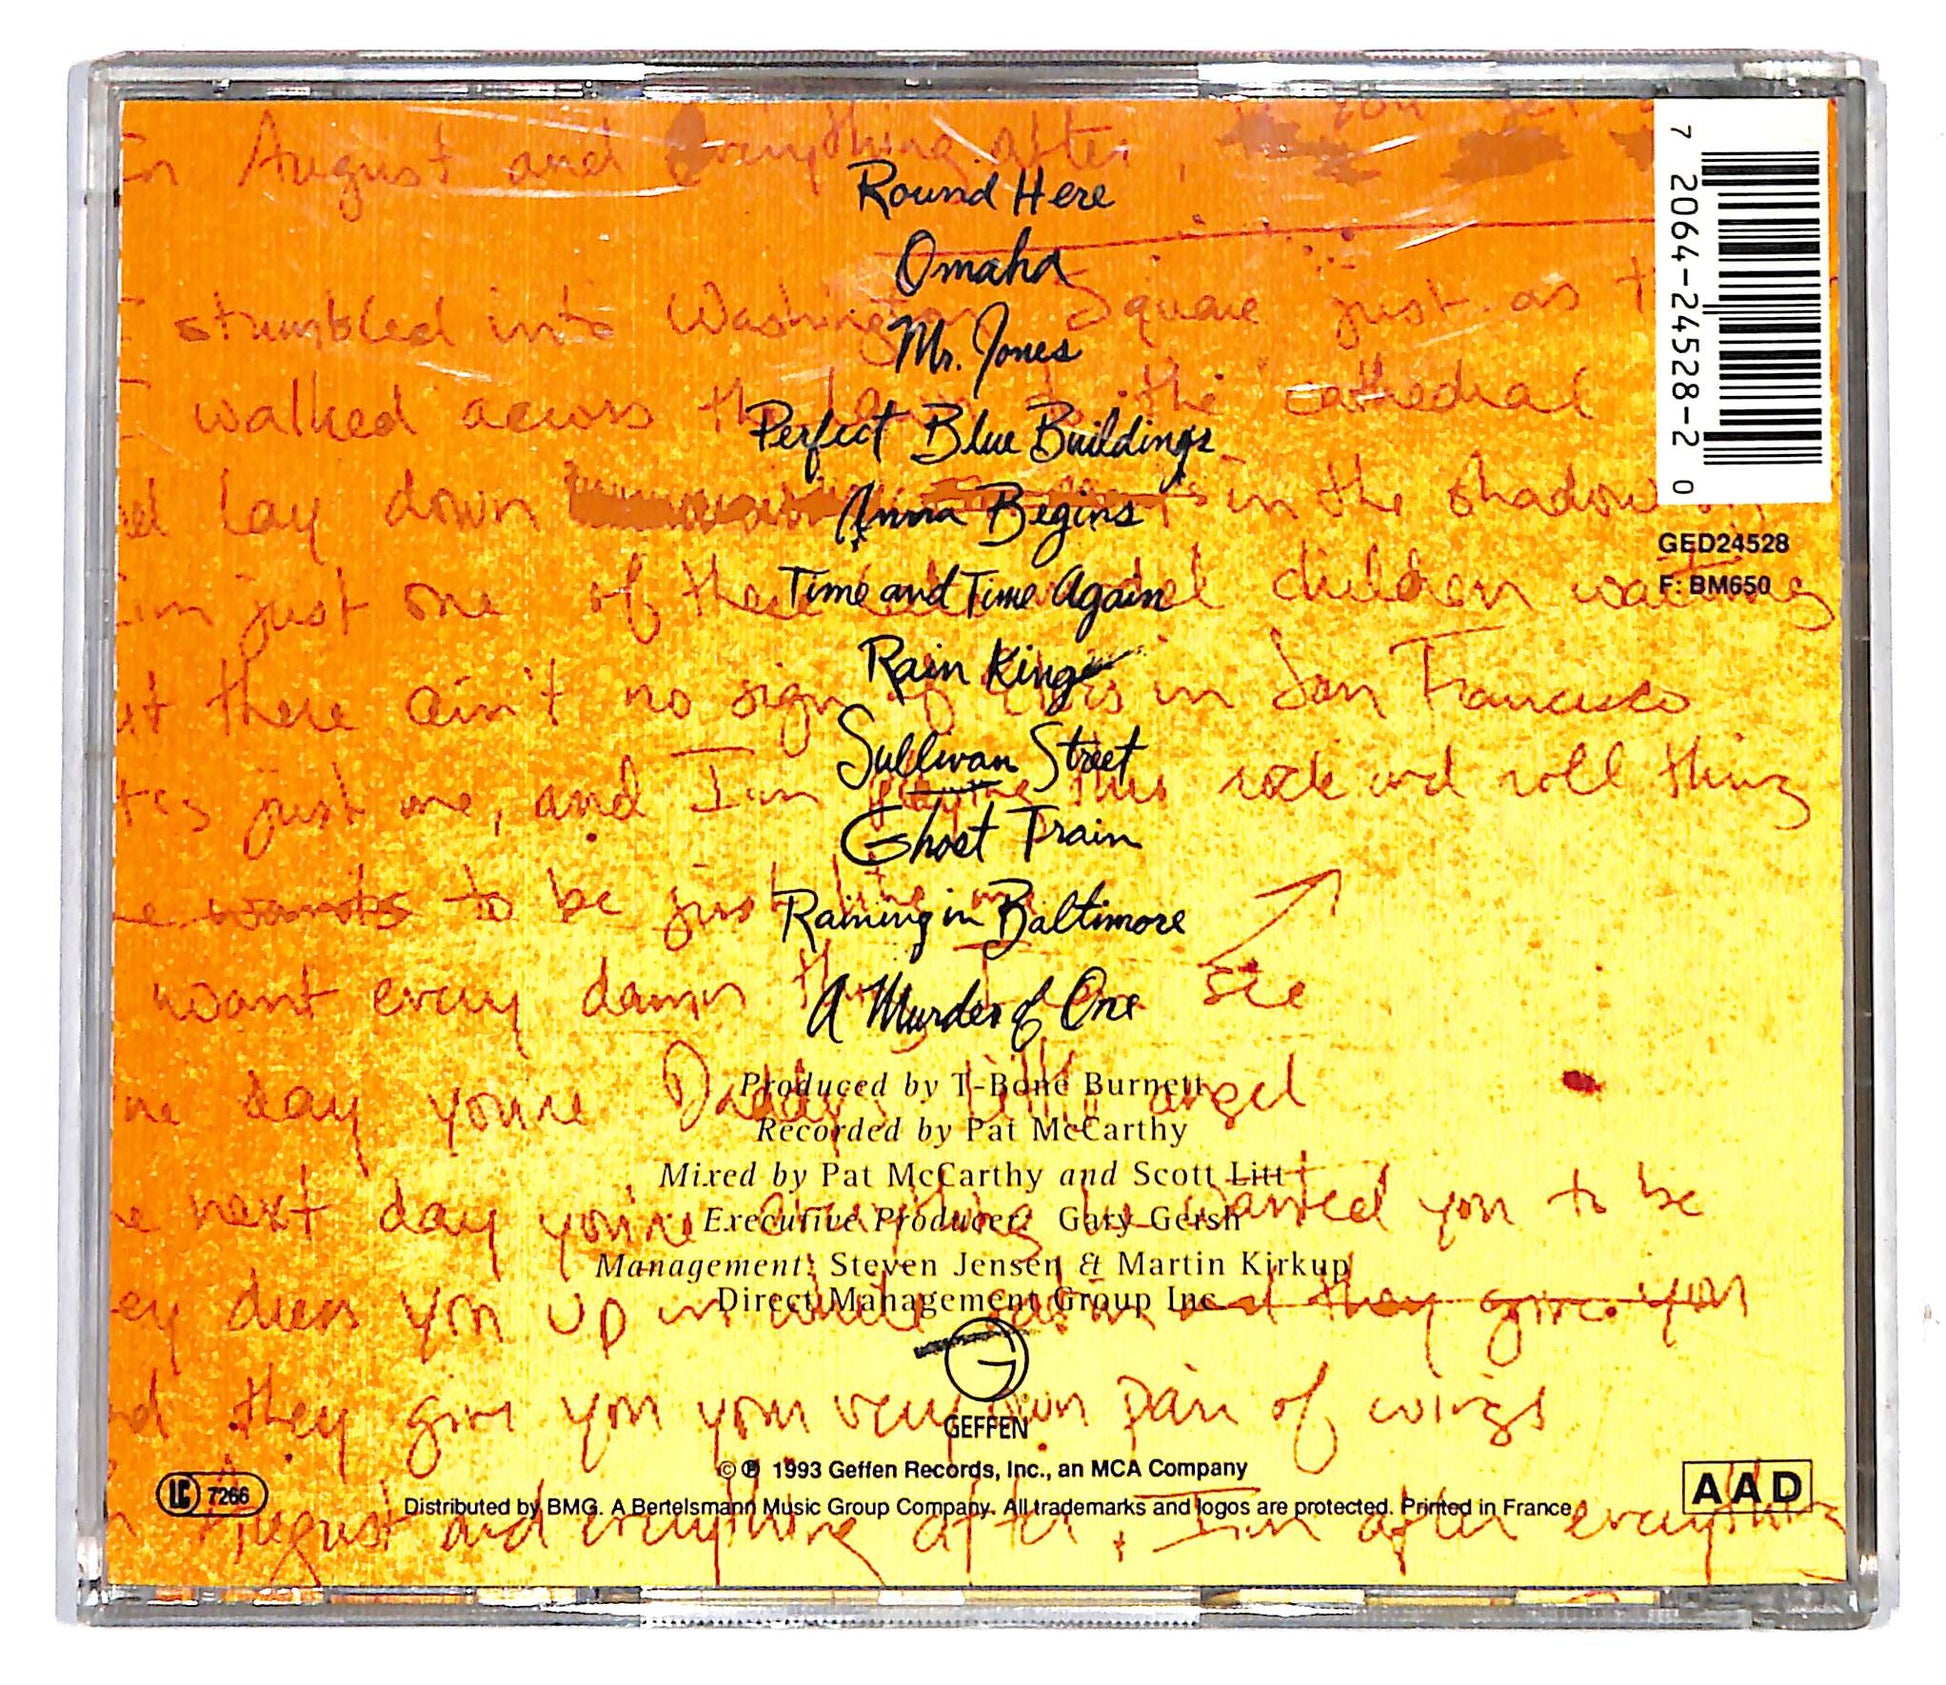 Round Here
Omaha
Mr. Jones
Perfect Blue Buildings
Anna Begins
Time and Time Again
Rain King
Sullivan Street
Ghost Train
Raining in Baltimore
A Murder of One
Produced by T-Bone Burnett
Recorded by Pat McCarthy
Mixed by Pat McCarthy and Scott Litt
Executive Producer: Gary Gersh
Management: Steven Jensen & Martin Kirkup
Direct Management Group Inc.
G
GEFFEN
© ℗ 1993 Geffen Records, Inc., an MCA Company
Distributed by BMG. A Bertelsmann Music Group Company. All trademarks and logos are protected. Printed in France
LC 7266
AAD
7 2064-24528-2 0
GED24528
F: BM650
In August and Everything after, you
stumbled into Washington Square just as
I walked across the to the cathedral
lay down in the shadow
I'm just one of these children waiting
there ain't no sign of in San Francisco
just me, and I'm playing this rock and roll thing
wants to be just like me
want every damn thing I can see
day you're Daddy's little angel
next day you're everything he wanted you to be
dress you up in white satin and they give you
they give you your very own pair of wings
August and everything after, I'm after everything